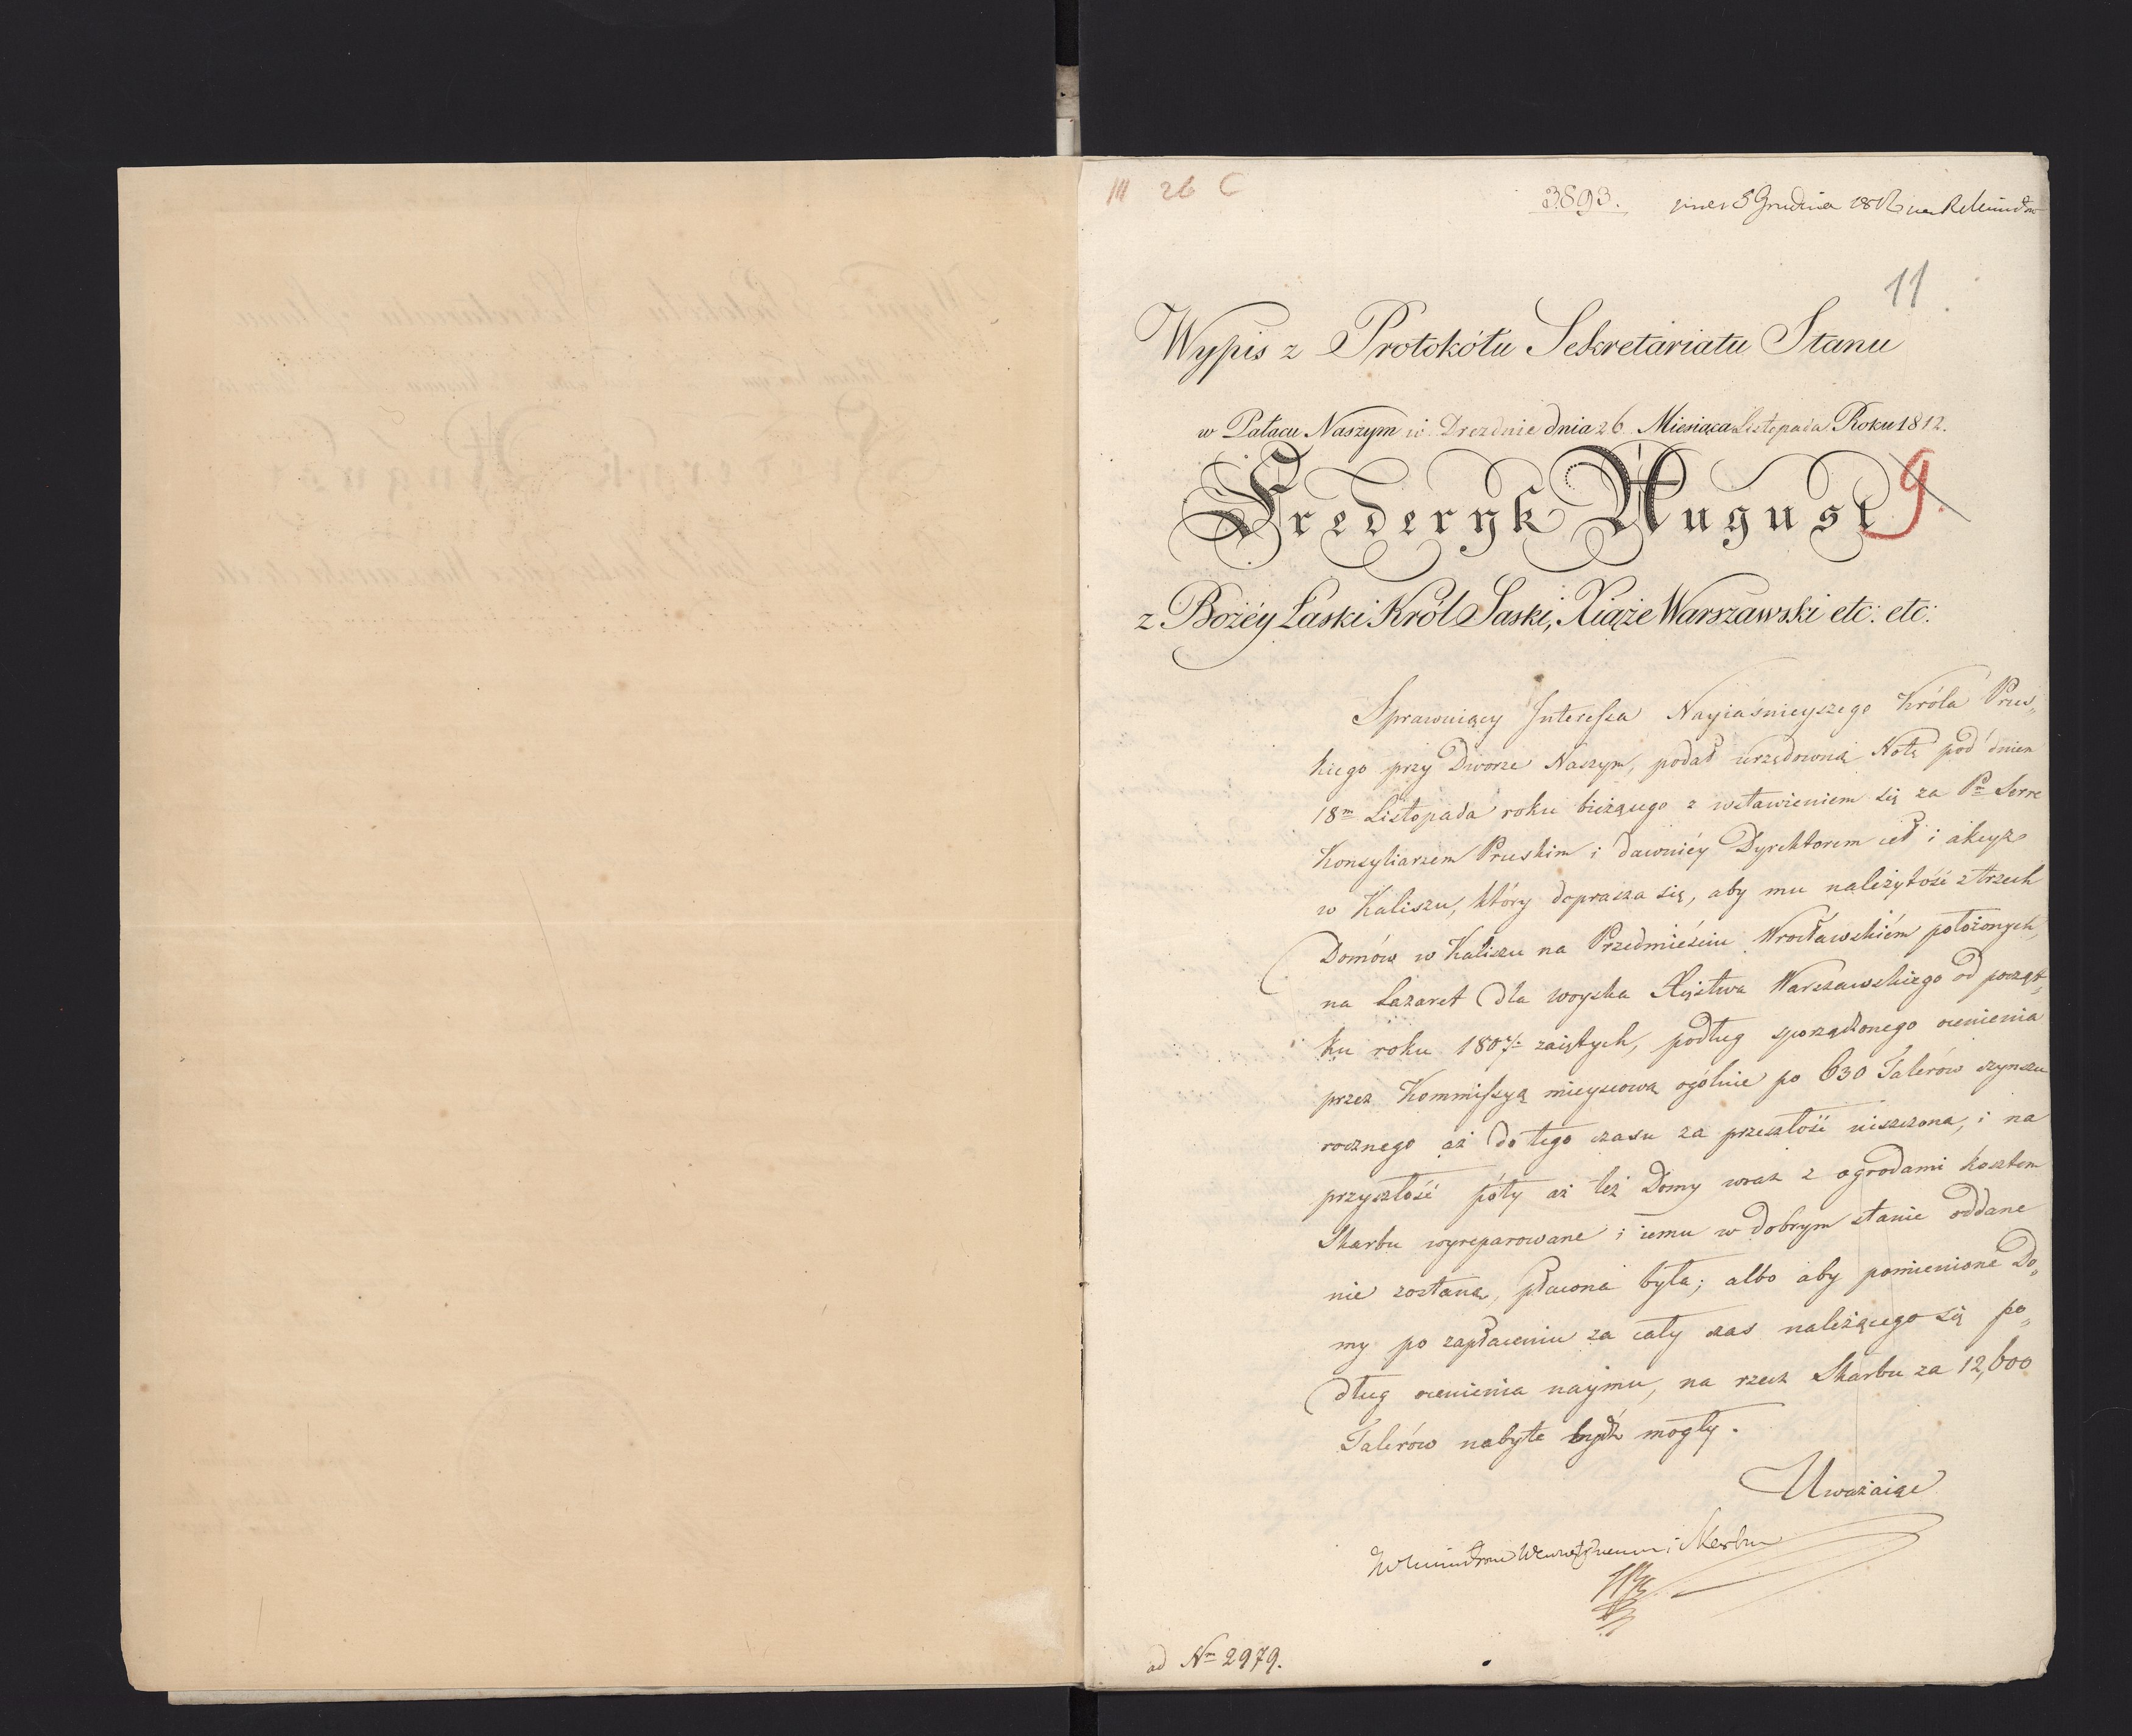 III 26 C
3893.
5 Grudnia 1812
11
Wypis z Protokółu Sekretariatu Stanu
w Pałacu Naszym w Dreznie dnia 26 Miesiąca Listopada Roku 1812.
Frederyk August
9
z Bożéy Łaski Król Saski, Xiąże Warszawski etc: etc:
Sprawuiący Interessa Nayiaśnieyszego Króla Prus„
kiego przy Dworze Naszym, podał urzędową Notę pod dniem
18m Listopada roku bieżącego z wstawieniem się za Pm Serre
Konsyliarzem Pruskim i dawniéy Dyrektorem ceł i akcyz
w Kaliszu, który doprasza się, aby mu należytość z trzech
Domów w Kaliszu na Przedmieściu Wrocławskiém położonych,
na Lazaret dla woyska Xięstwa Warszawskiego od począt„
ku roku 1807. zaiętych, podług sporządzonego ocenienia
przez Kommissyą mieyscową ogólnie po 630 Talerów czynszu
rocznego aż do tego czasu za przeszłość uiszczona, i na
przyszłość póty aż też Domy wraz z ogrodami kosztem
Skarbu wyreparowane i iemu w dobrym stanie oddane
nie zostaną, płacona była; albo aby pomienione Do„
my po zapłaceniu za cały czas należącego się po„
dług ocenienia naymu, na rzecz Skarbu za 12,600
Talerów nabyte bydź mogły.
Uważaiąc
i Skarbu
ad Nm 2979.